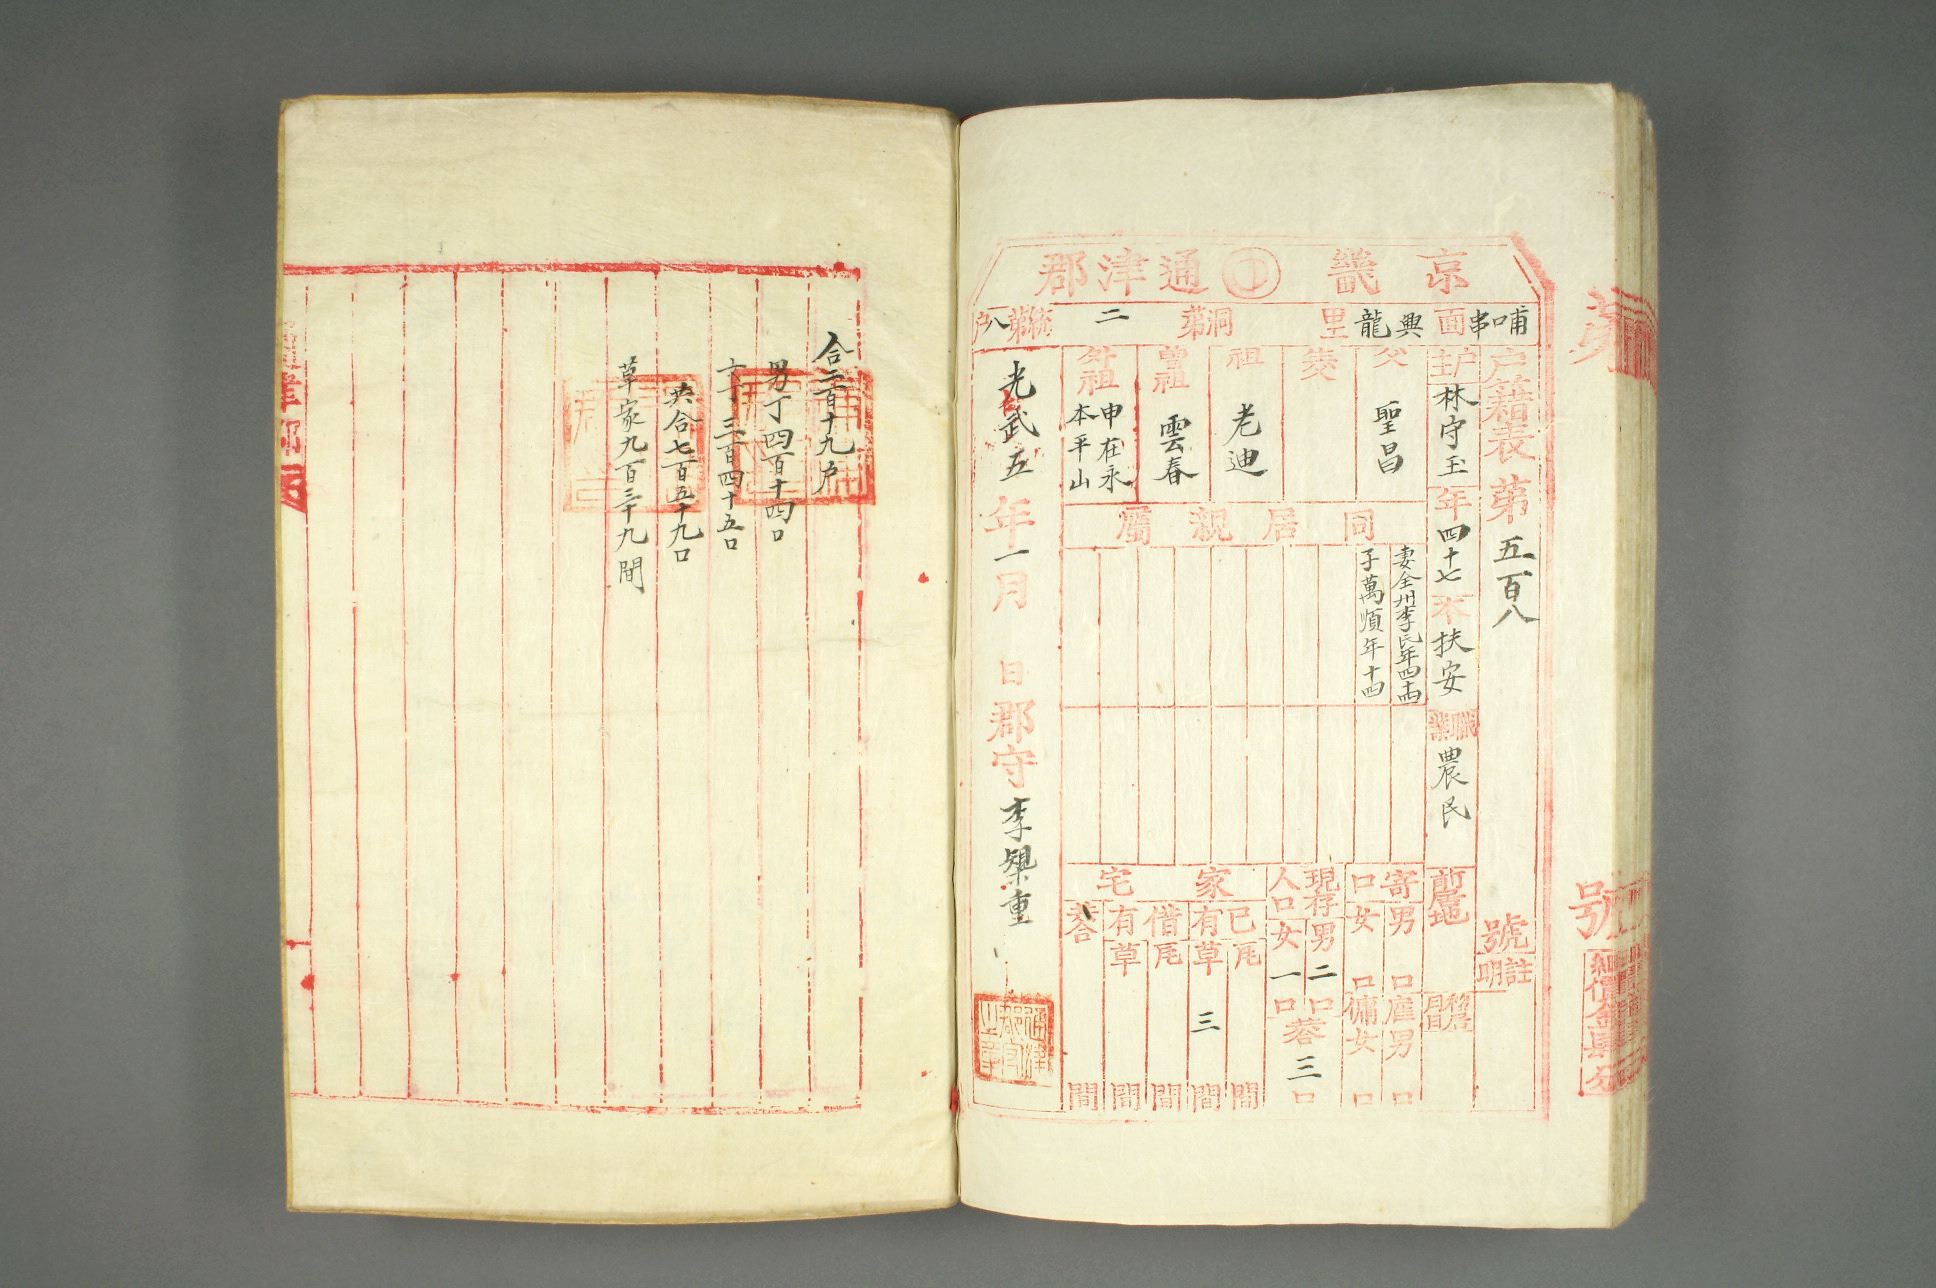 京畿 道 通津郡
哺口串面 興龍里 洞第二 統第八戶
戶籍表 第五百八號
註明
戶主 林守玉 年四十七 本扶安 職業 農民 前居地 移居月日
父 聖昌
生
祖 老迪
曾祖 雲春
外祖 申在永 本平山
同居親屬
妻全州李氏年四十四
子萬順年十四
寄口 男 口 女 口
雇男 口 傭女 口
現存人口 男二口 女一口 共三口
家宅
己有 瓦 間 草 三 間
借有 瓦 間 草 間
共合 間
光武五年一月 日郡守李 重
合二百十九戶
男丁四百十四口
女丁三百四十五口
共合七百五十九口
草家九百三十九間